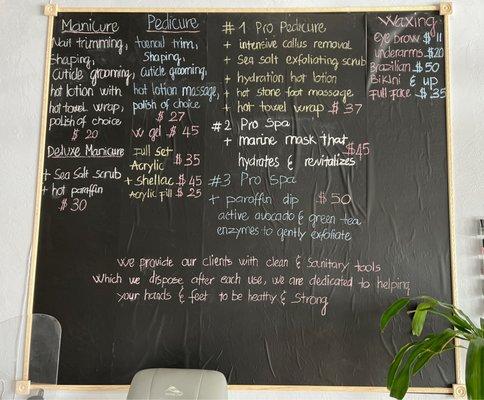 Manicure
Nail trimming,
Shaping,
Cuticle grooming,
hot lotion with
hot towel wrap,
polish of choice
$ 20
Deluxe Manicure
+ Sea Salt scrub
+ hot paraffin
$ 30
Pedicure
toenail trim,
Shaping,
Cuticle grooming,
hot lotion massage,
polish of choice
$ 27
w gel $ 45
Full set
Acrylic $ 35
+ shellac $ 45
Acrylic fill $ 25
# 1 Pro Pedicure
+ intensive callus removal
+ Sea salt exfoliating scrub
+ hydration hot lotion
+ hot stone foot massage
+ hot towel wrap $ 37
#2 Pro Spa
+ marine mask that
hydrates & revitalizes $45
#3 Pro Spa
+ paraffin dip $ 50
active avocado & green tea
enzymes to gently exfoliate
Waxing
Eye brow $ 11
underarms $20
Brazilian $50
Bikini & up
Full Face $ 35
We provide our clients with clean & sanitary tools
Which we dispose after each use, we are dedicated to helping
your hands & feet to be heathy & strong